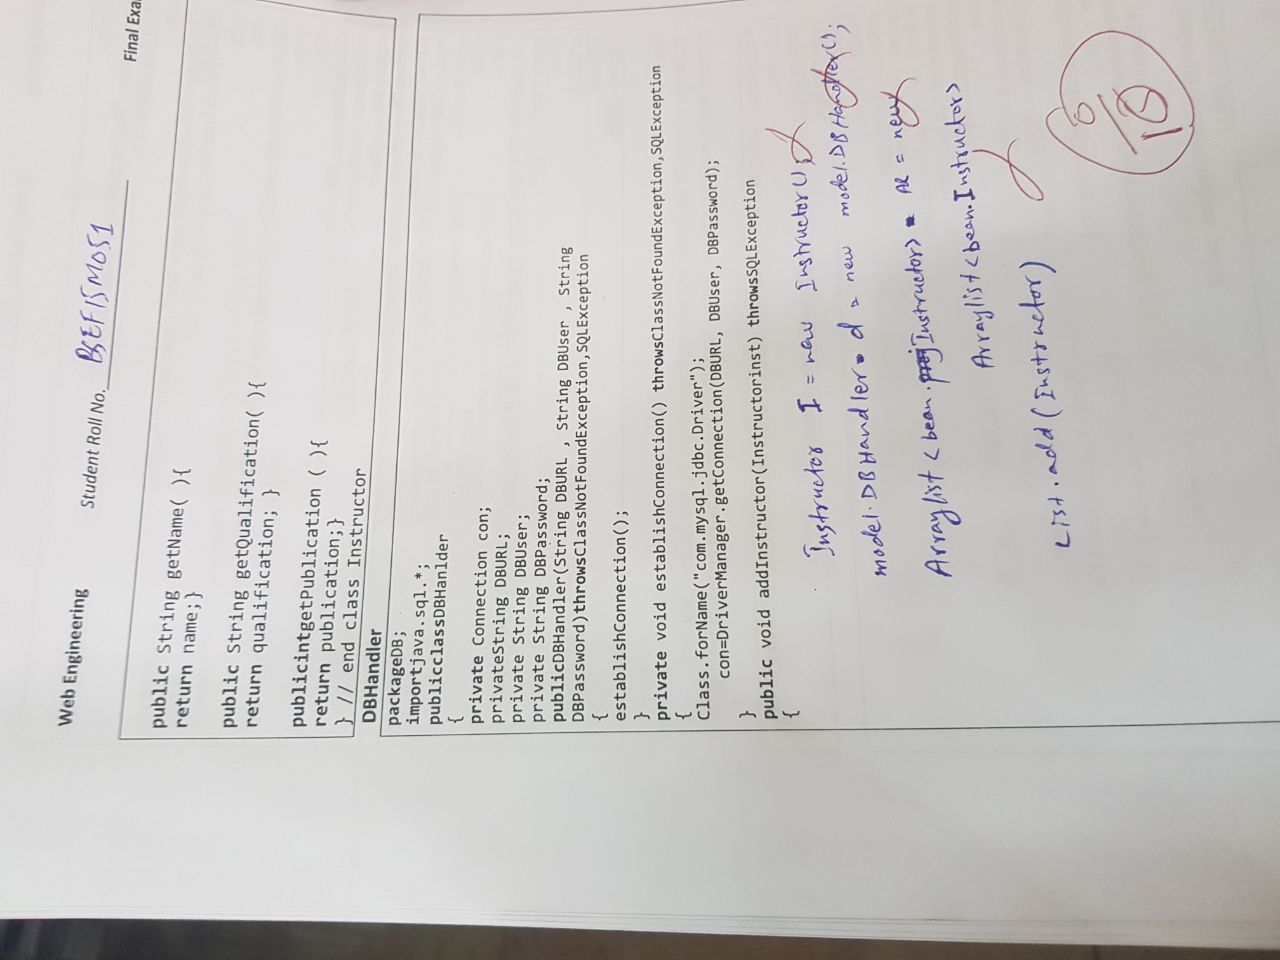 Web Engineering
Student Roll No. BSEF15M051
Final Exa
public String getName( ){
return name;}
public String getQualification( ){
return qualification; }
publicintgetPublication ( ){
return publication;}
} // end class Instructor
DBHandler
packageDB;
importjava.sql.*;
publicclassDBHanlder
{
private Connection con;
privateString DBURL;
private String DBUser;
private String DBPassword;
publicDBHandler(String DBURL , String DBUser , String
DBPassword)throwsClassNotFoundException,SQLException
{
establishConnection();
}
private void establishConnection() throwsClassNotFoundException,SQLException
{
Class.forName("com.mysql.jdbc.Driver");
con=DriverManager.getConnection(DBURL, DBUser, DBPassword);
}
public void addInstructor(Instructorinst) throwsSQLException
{
Instructor I = new Instructor();
model.DBHandler d = new model.DBHandler();
Arraylist <bean.Instructor> AR = new
Arraylist <bean.Instructor>
List.add(Instructor)
0
10